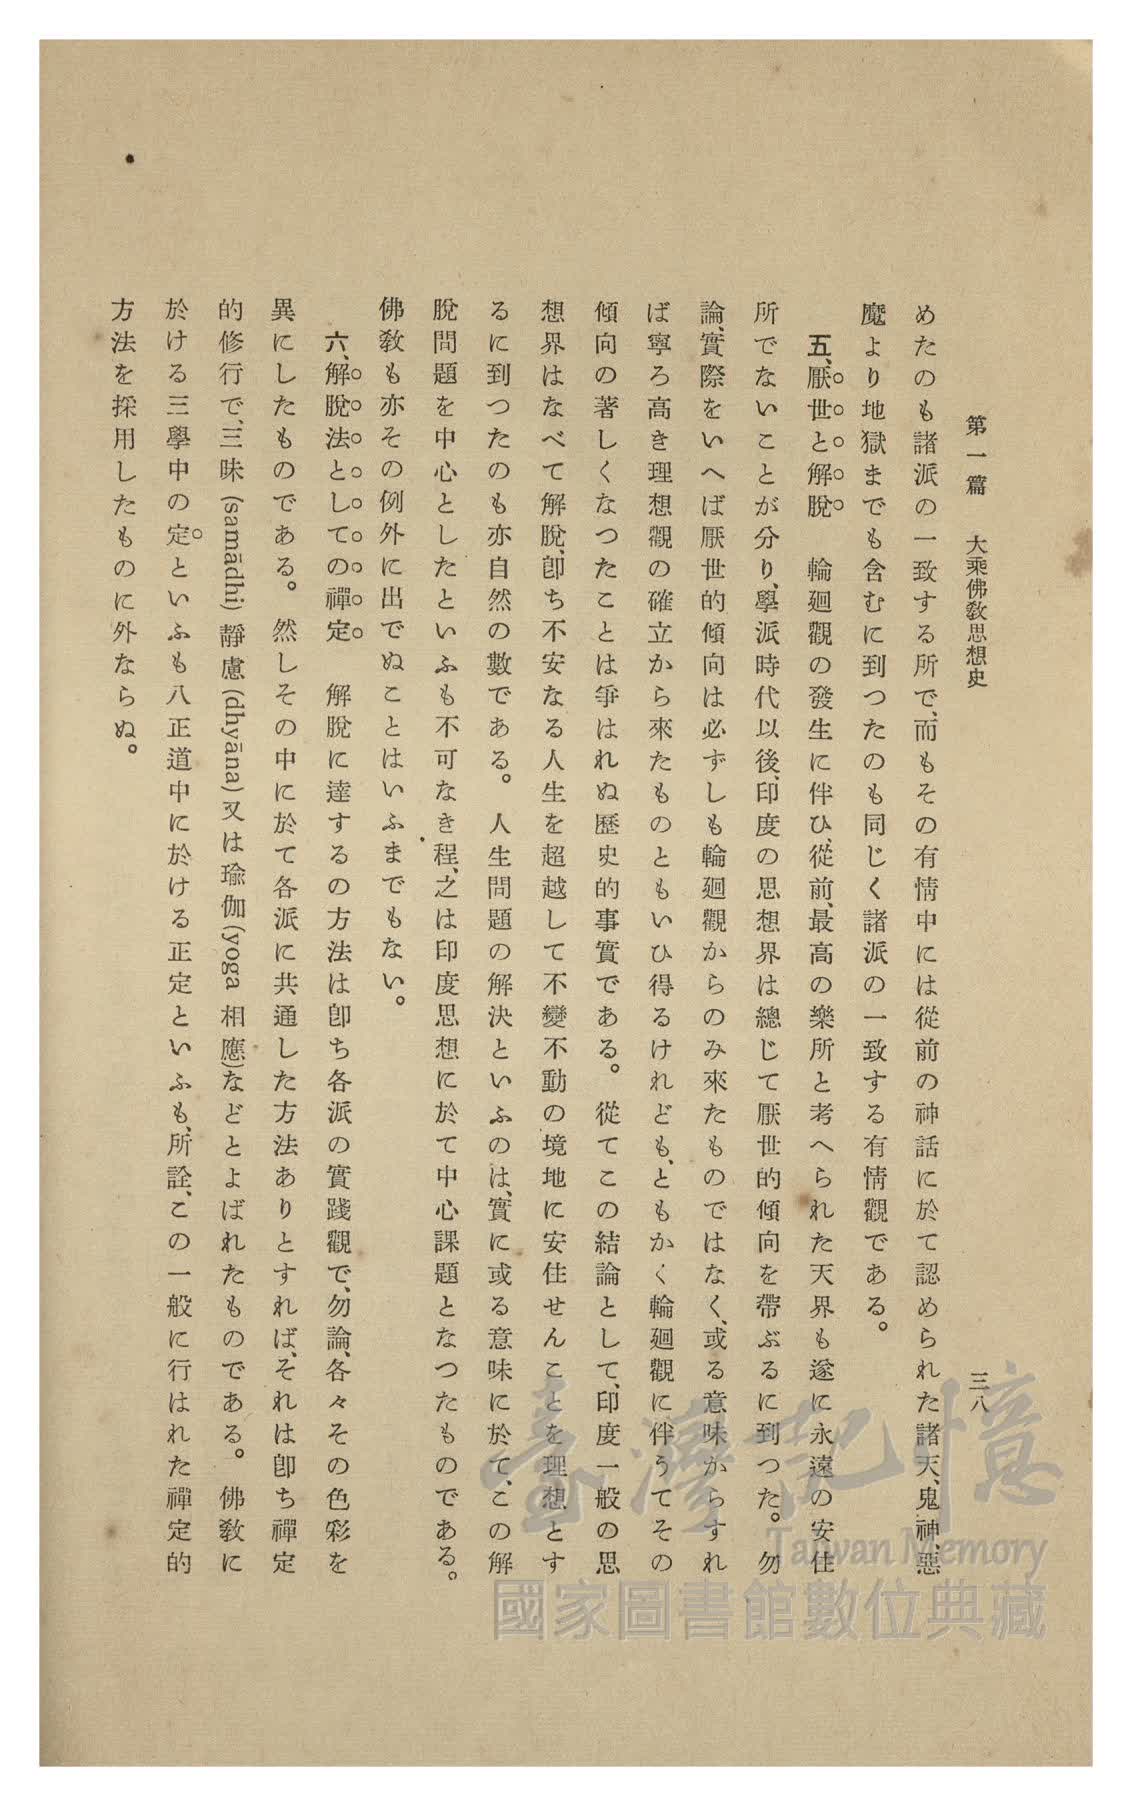 第一篇　大乘佛敎思想史　三八
めたのも諸派の一致する所で、而もその有情中には從前の神話に於て認められた諸天、鬼神、惡
魔より地獄までも含むに到つたのも同じく諸派の一致する有情觀である。
五、厭世と解脫　輪廻觀の發生に伴ひ、從前、最高の樂所と考へられた天界も遂に永遠の安住
所でないことが分り、學派時代以後、印度の思想界は總じて厭世的傾向を帶ぶるに到つた。勿
論、實際をいへば厭世的傾向は必ずしも輪廻觀からのみ來たものではなく、或る意味からすれ
ば寧ろ高き理想觀の確立から來たものともいひ得るけれども、ともかく輪廻觀に伴うてその
傾向の著しくなつたことは爭はれぬ歷史的事實である。從てこの結論として、印度一般の思
想界はなべて解脫、卽ち不安なる人生を超越して不變不動の境地に安住せんことを理想とす
るに到つたのも亦自然の數である。人生問題の解決といふのは、實に或る意味に於て、この解
脫問題を中心としたといふも不可なき程、之は印度思想に於て中心課題となつたものである。
佛敎も亦その例外に出でぬことはいふまでもない。
六、解脫法としての禪定　解脫に達するの方法は卽ち各派の實踐觀で、勿論、各々その色彩を
異にしたものである。然しその中に於て各派に共通した方法ありとすれば、それは卽ち禪定
的修行で、三昧 (samādhi) 靜慮 (dhyāna) 又は瑜伽 (yoga 相應)などとよばれたものである。佛敎に
於ける三學中の定といふも八正道中に於ける正定といふも、所詮、この一般に行はれた禪定的
方法を採用したものに外ならぬ。
臺灣記憶
Taiwan Memory
國家圖書館數位典藏